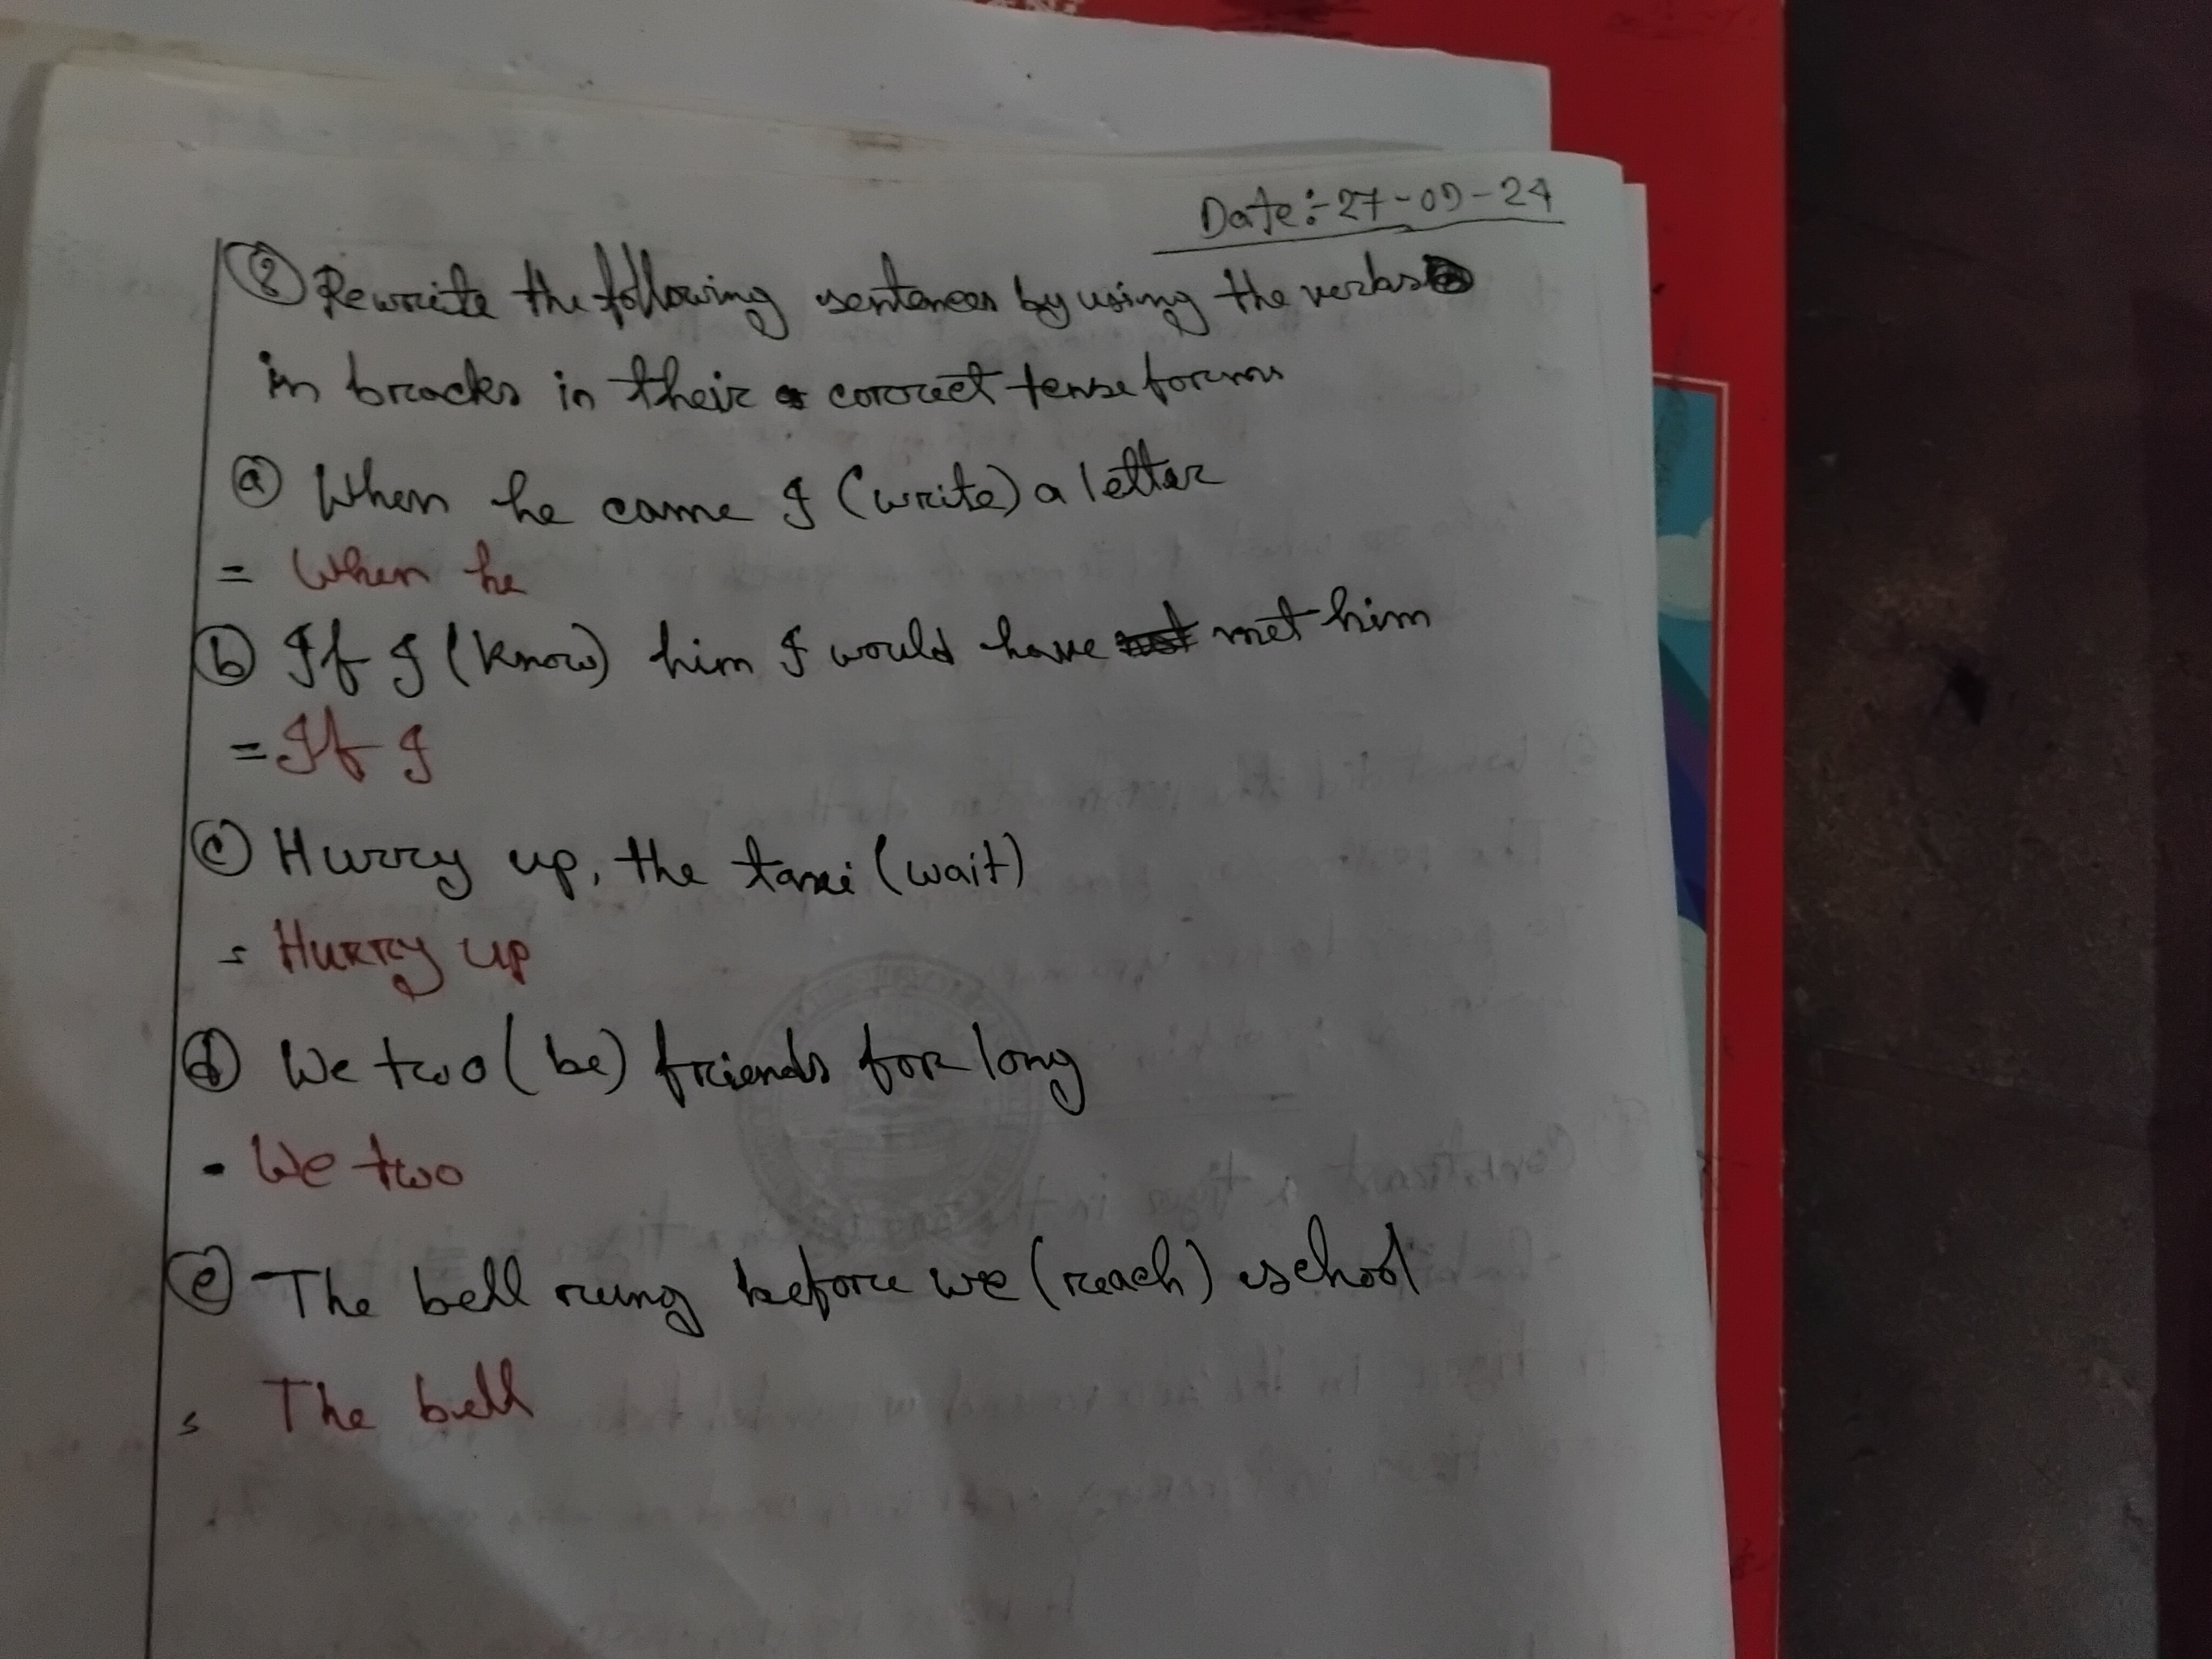 Date:-27-09-24
8 Rewrite the following sentences by using the verbs
in bracks in their correct tense forms
a When he came I (write) a letter
= When he
b If I (know) him I would have met him
= If I
c Hurry up, the taxi (wait)
= Hurry up
d We two (be) friends for long
- We two
e The bell rung before we (reach) school
= The bell